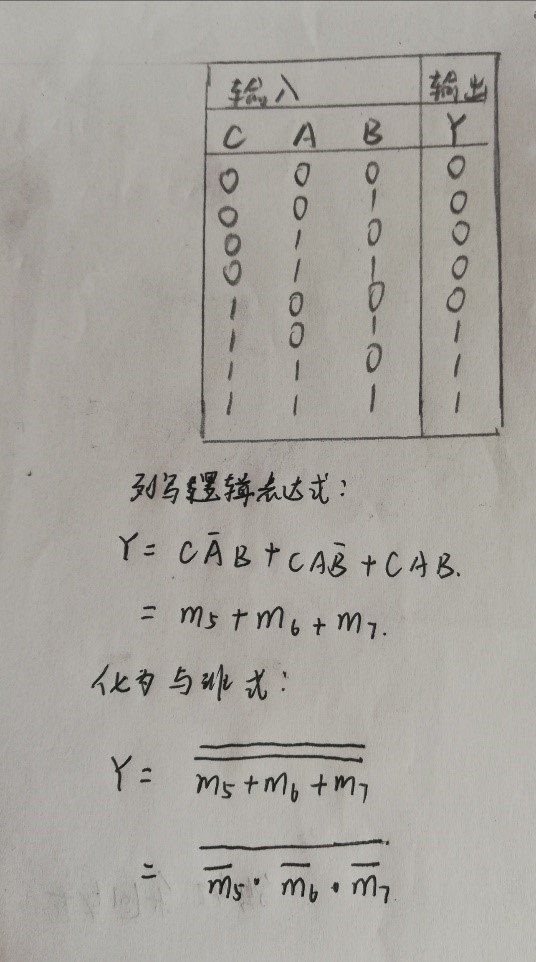 输入 输出
C A B Y
0 0 0 0
0 0 1 0
0 1 0 0
0 1 1 0
1 0 0 0
1 0 1 1
1 1 0 1
1 1 1 1
列写逻辑表达式:
Y = CA̅B + CAB̅ + CAB.
= m₅ + m₆ + m₇.
化为与非式:
Y = m̿₅̿ ̿+̿ ̿m̿₆̿ ̿+̿ ̿m̿₇̿
= \overline{m̅₅ · m̅₆ · m̅₇}